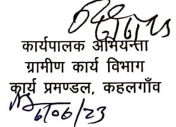 कार्यपालक अभियन्ता
ग्रामीण कार्य विभाग
कार्य प्रमण्डल, कहलगाँव
6/06/23